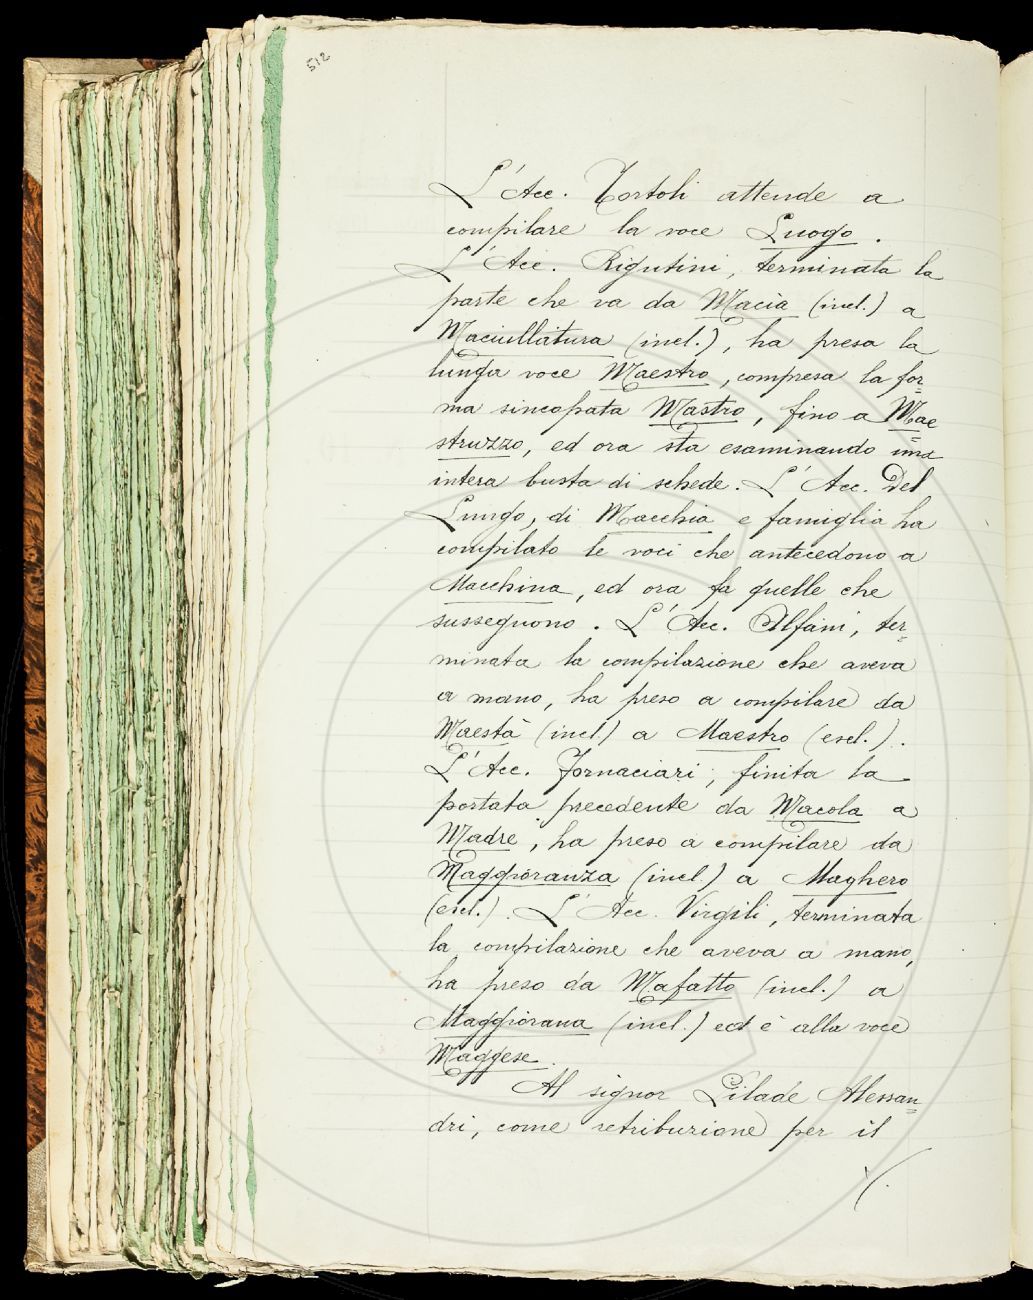 512
L'Acc. Tortoli attende a
compilare la voce Luogo.
L'Acc. Rigutini, terminata la
parte che va da Macìa (incl.) a
Maciullatura (incl.), ha presa la
lunga voce Maestro, compresa la for=
ma sincopata Mastro, fino a Mae=
struzzo, ed ora sta esaminando una
intera busta di schede. L'Acc. Del
Lungo, di Macchia e famiglia ha
compilato le voci che antecedono a
Macchina, ed ora fa quelle che
susseguono. L'Acc. Alfani, ter=
minata la compilazione che aveva
a mano, ha preso a compilare da
Maestà (incl.) a Maestro (escl.).
L'Acc. Fornaciari, finita la
portata precedente da Macola a
Madre, ha preso a compilare da
Maggioranza (incl.) a Maghero
(escl.). L'Acc. Virgili, terminata
la compilazione che aveva a mano,
ha preso da Mafatto (incl.) a
Maggiorana (incl.) ed è alla voce
Maggese.
Al signor Pilade Alessan=
dri, come retribuzione per il